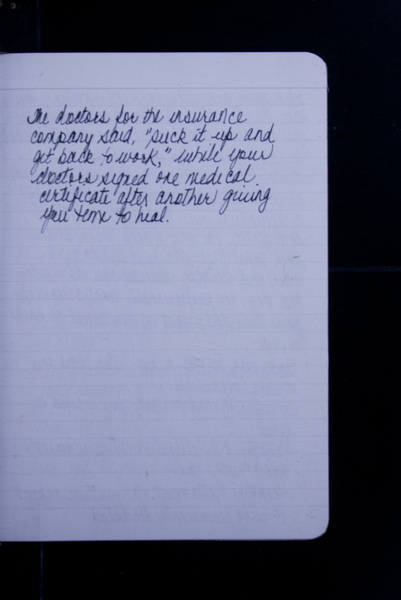 The doctors for the insurance
company said, "suck it up and
get back to work," while your
doctors signed one medical
certificate after another giving
you time to heal.